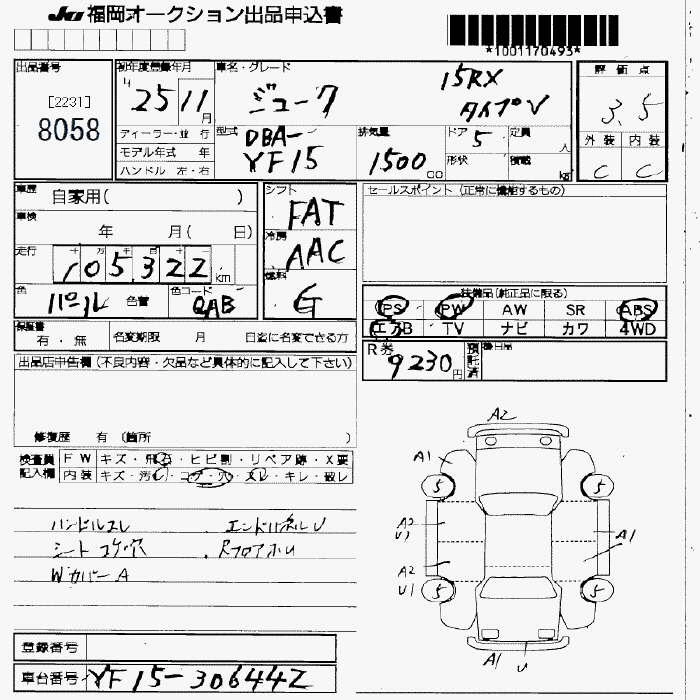 JU 福岡オークション出品申込書
*1001170493*
出品番号
[2231]
8058
初年度登録年月
H 25 11 月
車名・グレード
ジューク 15RX
タイプV
ディーラー・並 行
モデル年式 年
ハンドル 左・右
型式
DBA-
YF15
排気量
1500 CC
ドア 5
形状
定員 人
積載 kg
評価点
3.5
外装 内装
C C
車歴
自家用( )
車検
年 月( 日)
走行
十 万 千 百 十 一
105,322 km
色
パール 色替
色コード
QAB
シフト
FAT
冷房
AAC
燃料
G
セールスポイント (正常に機能するもの)
装備品(純正品に限る)
PS PW AW SR ABS
エアB TV ナビ カワ 4WD
保証書
有・無
名変期限 月 日迄に名変できる方
R券
9230 円
預託済
後日品
出品店申告欄(不良内容・欠品など具体的に記入して下さい)
修復歴 有 (箇所 )
検査員記入欄
FW キズ・飛石・ヒビ割・リペア跡・X要
内装 キズ・汚レ・コゲ・穴・スレ・キレ・破レ
ハンドルスレ エンドパネルU
シート コゲ穴 RフロアホU
Wカバー A
A2
A1
5 5
A2
U1
A1
A2
U1
5 5
A1 U
登録番号
車台番号 YF15-306442